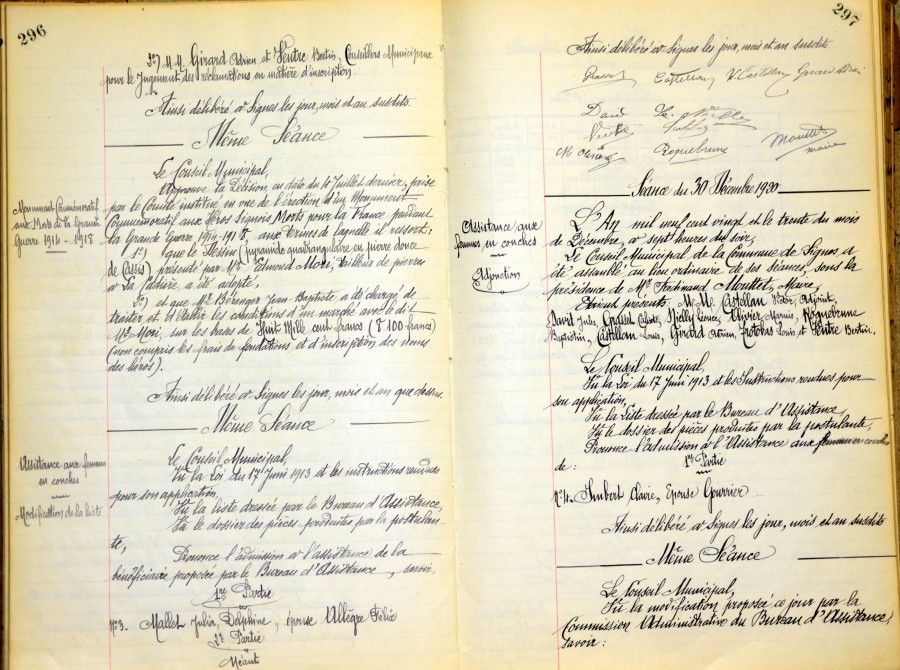 296
3°) M.M. Girard Adrien et Ventre Bertin, Conseillers Municipaux
pour le Jugement des réclamations en matière d'inscription
Ainsi délibéré et Signés les jour, mois et an susdits.
Même Séance
Le Conseil Municipal,
Monument Commémoratif
aux Morts de la Grande
Guerre 1914-1918
Approuve la Décision en date du Juillet dernier, prise
par le Comité institué en vue de l'érection d'un Monument
Commémoratif aux Héros Signois Morts pour la France pendant
la Grande Guerre 1914-1918 aux termes de laquelle il ressort:
1°) que le Dessin (pyramide quadrangulaire en pierre douce
de Cassis) présenté par Mr Edmond Mori, tailleur de pierres
à La Cadière, a été adopté,
2°) et que Mr Bérenger Jean-Baptiste a été chargé de
traiter et d'établir les conditions d'un marché avec le dit
Mr Mori, sur les bases de Huit Mille cent francs (8.100 francs)
(non compris les frais de fondations et d'inscription des noms
des héros).
Ainsi délibéré et Signés les jour, mois et an que dessus.
Même Séance
Assistance aux femmes
en couches
Modification de la liste
Le Conseil Municipal,
Vu la Loi du 17 Juin 1913 et les instructions rendues
pour son application,
Vu la liste dressée par le Bureau d'Assistance,
Vu le dossier des pièces produites par la postulan
te,
Prononce l'admission à l'assistance de la
bénéficiaire proposée par le Bureau d'Assistance, savoir.
1re Partie
N°3- Mallet Julia, Delphine, épouse Allègre Félix
2e Partie
Néant
297
Ainsi délibéré et Signés les jour, mois et an susdits
Castellan V. Castellan Girard Adrien
David
Roquebrune
Mouttet
maire
Séance du 30 Décembre 1920
Assistance aux
femmes en couches
Adjonction
L'An mil neuf cent vingt et le trente du mois
de Décembre, à sept heures du soir,
Le Conseil Municipal de la Commune de Signes a
été assemblé au lieu ordinaire de ses séances, sous la
présidence de Mr Ferdinand Mouttet, Maire,
Etaient présents, M.M. Castellan Victor, Adjoint,
David Jules, Grasset Calixte, Nielly Léonce, Olivier Marius, Roquebrune
Baptistin, Castellan Louis, Girard Adrien, Trotobas Louis et Ventre Bertin.
Le Conseil Municipal,
Vu la Loi du 17 Juin 1913 et les Instructions rendues pour
son application,
Vu la Liste dressée par le Bureau d'Assistance,
Vu le dossier des pièces produites par la postulante,
Prononce l'admission à l'Assistance aux femmes en couches
de:
1re Partie
N°4. Imbert Claire, Epouse Gourrier
Ainsi délibéré et Signés les jour, mois et an susdits
Même Séance
Le Conseil Municipal,
Vu la modification proposée ce jour par la
Commission Administrative du Bureau d'Assistance,
savoir: